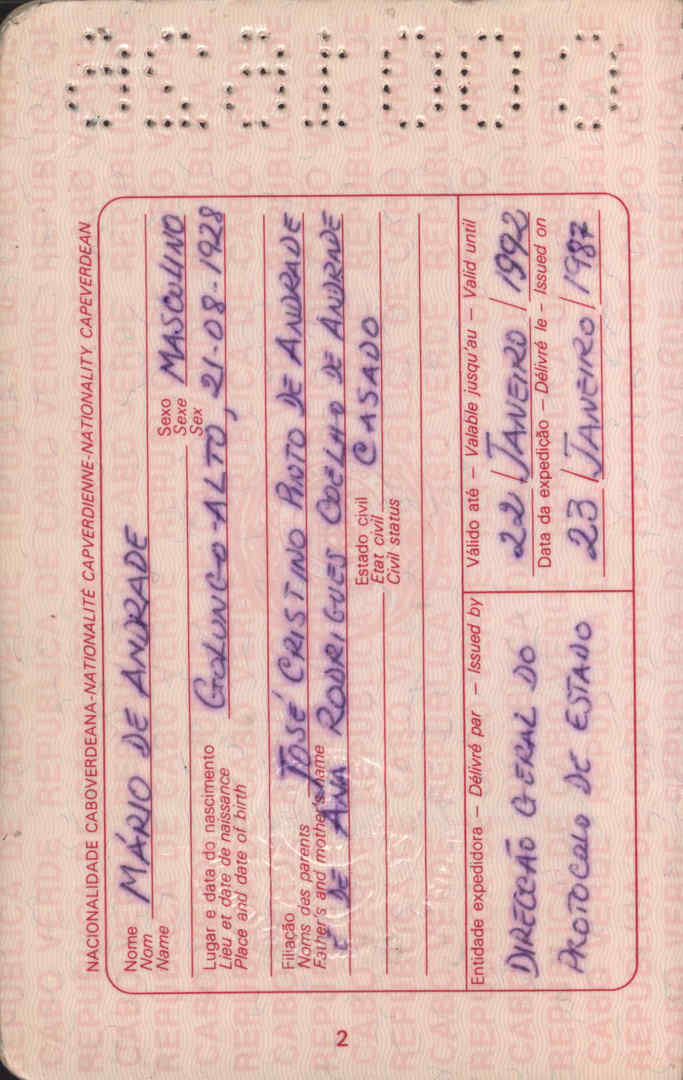 NACIONALIDADE CABOVERDEANA-NATIONALITÉ CAPVERDIENNE-NATIONALITY CAPEVERDEAN
Nome
Nom
Name
MÁRIO DE ANDRADE
Sexo
Sexe
Sex
MASCULINO
Lugar e data do nascimento
Lieu et date de naissance
Place and date of birth
GOLUNGO-ALTO, 21-08-1928
Filiação
Noms des parents
Father's and mother's name
JOSÉ CRISTINO PINTO DE ANDRADE
E DE ANA RODRIGUES COELHO DE ANDRADE
Estado civil
Etat civil
Civil status
CASADO
Entidade expedidora – Délivré par – Issued by
DIRECCÃO GERAL DO
PROTOCOLO DE ESTADO
Válido até – Valable jusqu'au – Valid until
22/JANEIRO/1992
Data da expedição – Délivré le – Issued on
23/JANEIRO/1987
2